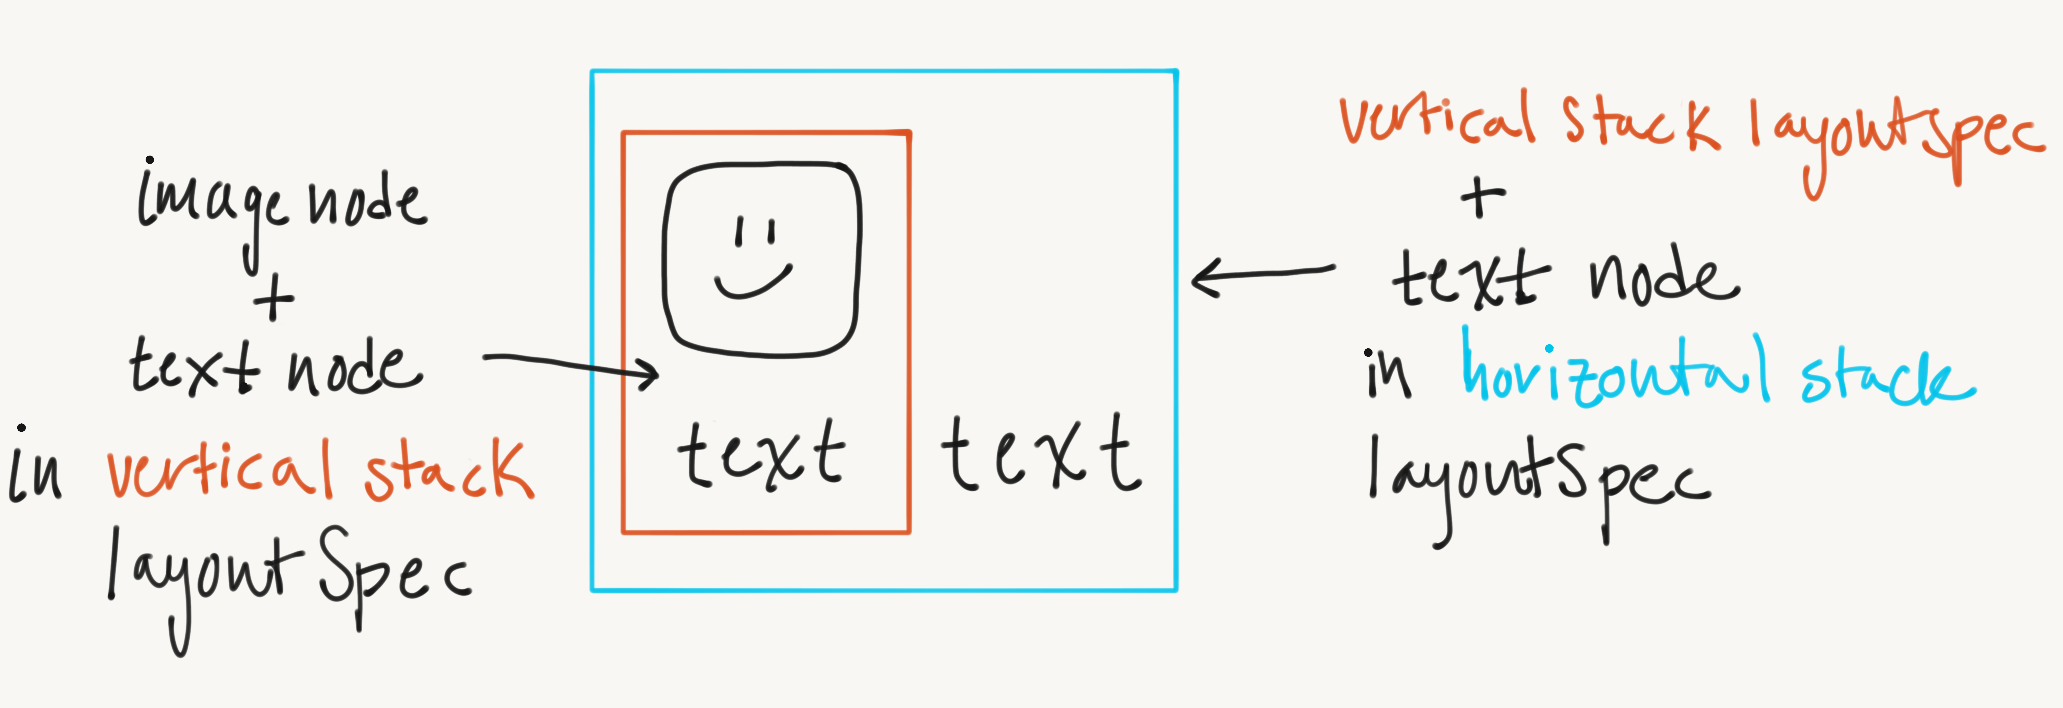 image node
+
text node
in vertical stack
layoutSpec
text text
vertical stack layoutspec
+
text node
in horizontal stack
layoutSpec